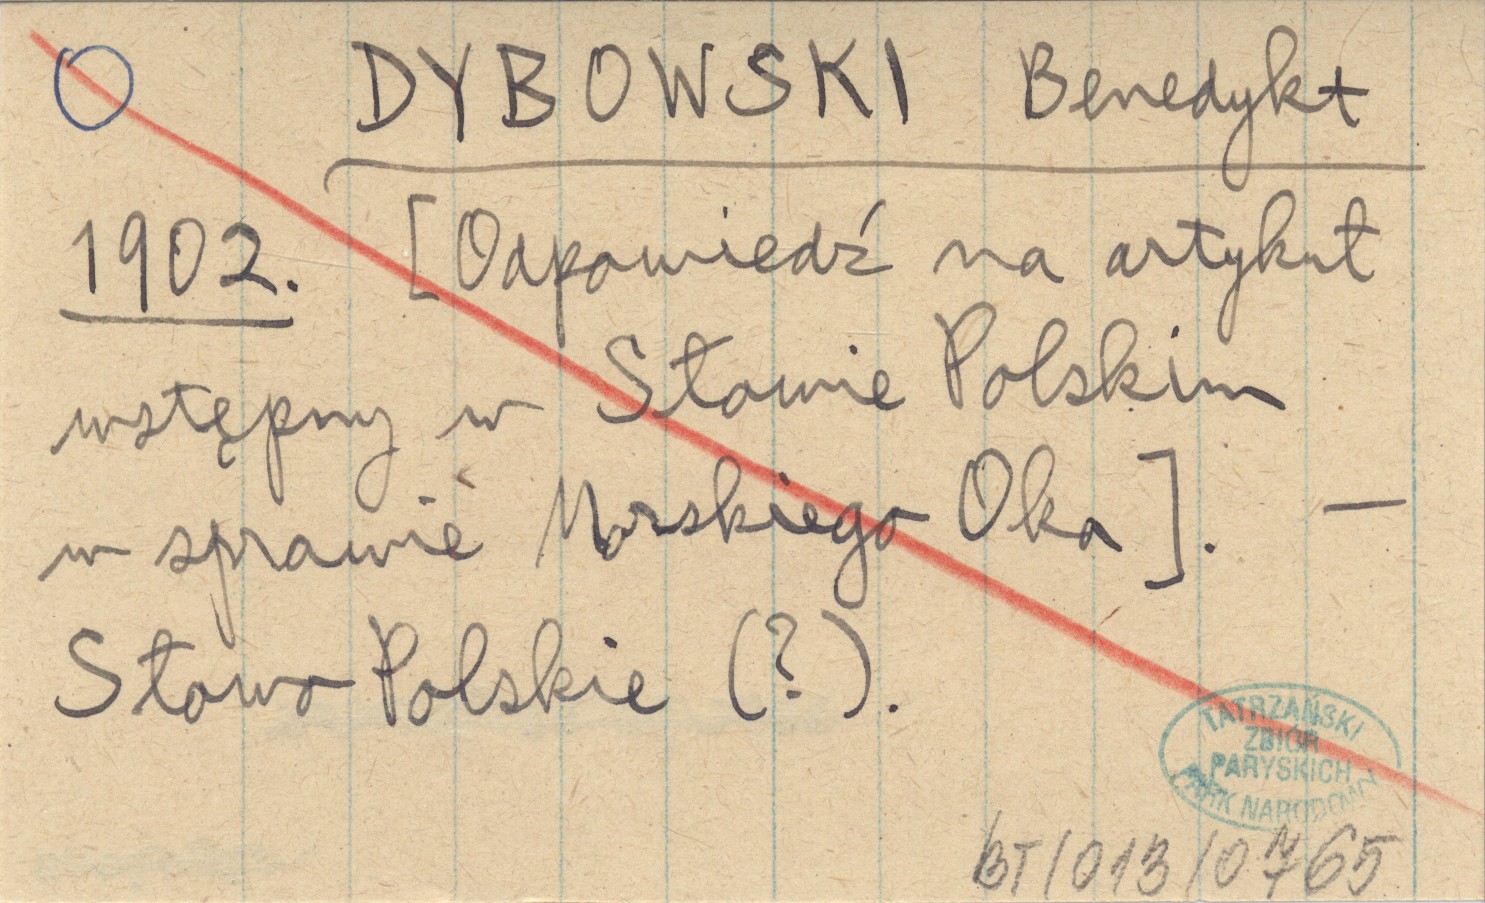 DYBOWSKI Benedykt
1902. [Odpowiedź na artykuł
wstępny w Słowie Polskim
w sprawie Morskiego Oka]. —
Słowo Polskie (?).
TATRZAŃSKI
ZBIÓR
PARYSKICH
PARK NARODOWY
BT/013/0765